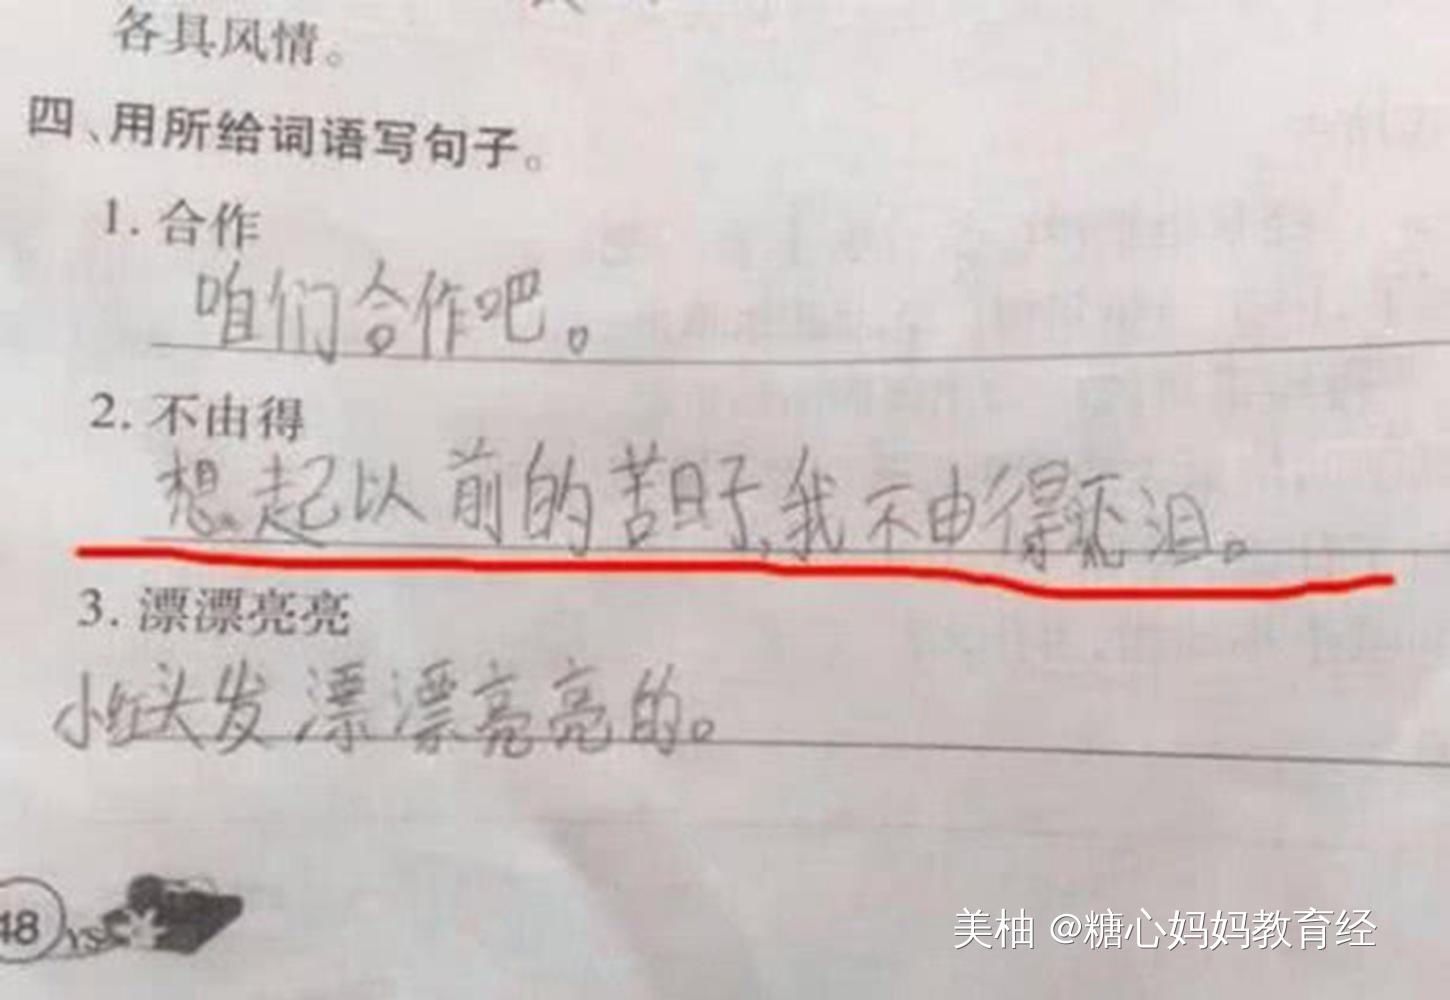 各具风情。
四、用所给词语写句子。
1. 合作
咱们合作吧。
2. 不由得
想起以前的苦日子,我不由得泪。
3. 漂漂亮亮
小红头发漂漂亮亮的。
48
美柚 @糖心妈妈教育经